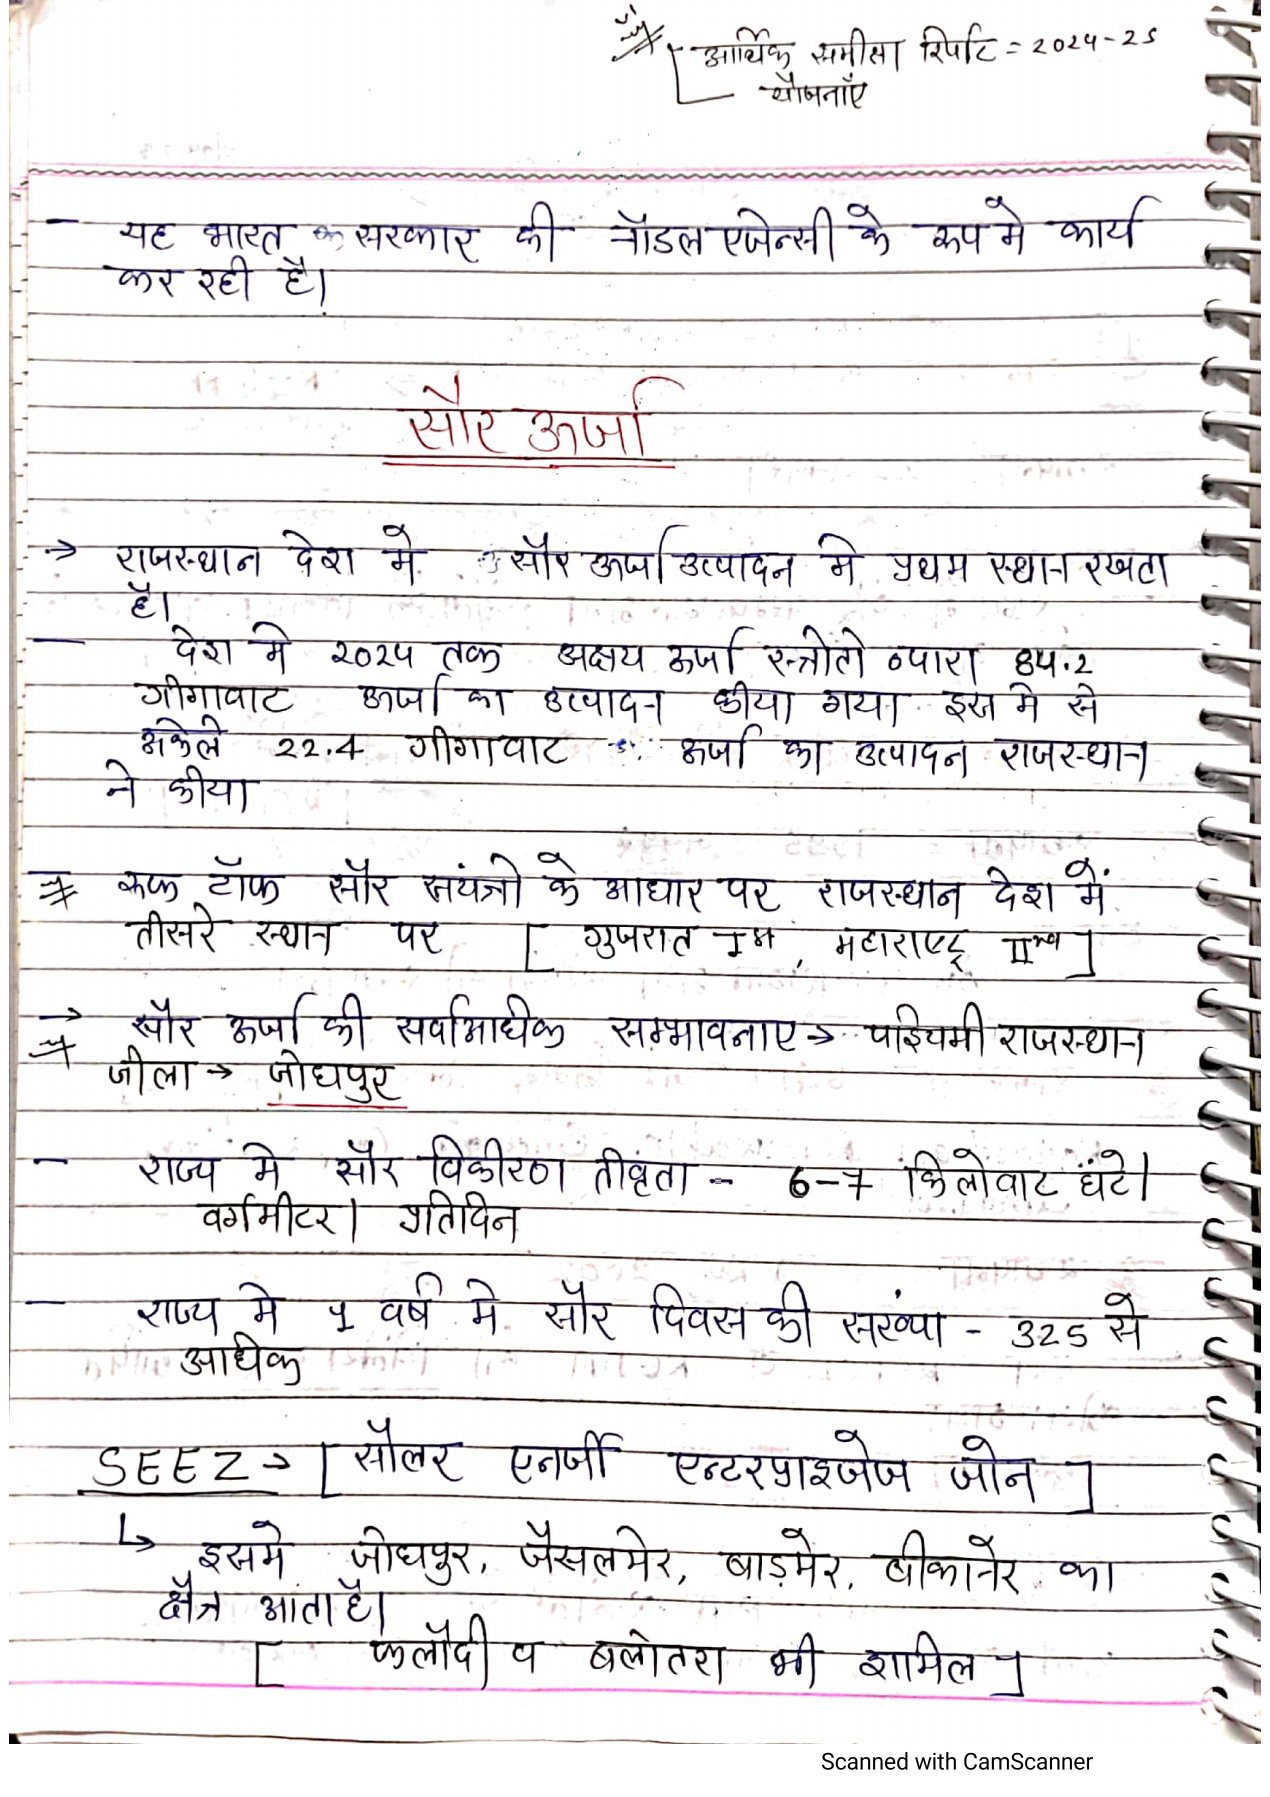 आर्थिक समीक्षा रिर्पोट = 2024-25
योजनाएँ
- यह भारत सरकार की नॉडल एजेन्सी के रूप मे कार्य
कर रही है।
सौर ऊर्जा
→ राजस्थान देश मे सौर ऊर्जा उत्पादन मे प्रथम स्थान रखता
है।
- देश मे 2024 तक अक्षय ऊर्जा स्त्रोतो व्दारा 84.2
गीगावाट ऊर्जा का उत्पादन कीया गया इस मे से
अकेले 22.4 गीगावाट ऊर्जा का उत्पादन राजस्थान
ने कीया
रूफ टॉफ सौर सयंत्रो के आधार पर राजस्थान देश में
तीसरे स्थान पर [ गुजरात Ist, महाराष्ट्र IInd ]
→ सौर ऊर्जा की सर्वाधिक सम्भावनाए → पश्चिमी राजस्थान
जीला → जोधपुर
- राज्य मे सौर विकीरण तीव्रता - 6-7 किलोवाट घंटे।
वर्गमीटर। प्रतिदिन
- राज्य मे 1 वर्ष मे सौर दिवस की सख्या - 325 से
अधिक
SEEZ → [ सौलर एनर्जी एन्टरप्राइजेज जोन ]
↳ इसमे जोधपुर, जैसलमेर, बाड़मेर, बीकानेर का
क्षैत्र आता है।
[ फलौदी व बलोतरा भी शामिल ]
Scanned with CamScanner